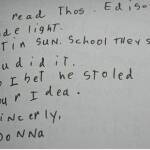 read Thos. Ediso
de light.
t in Sun. School they s
u did it.
I bet he stoled
ur idea.
incerly,
Donna